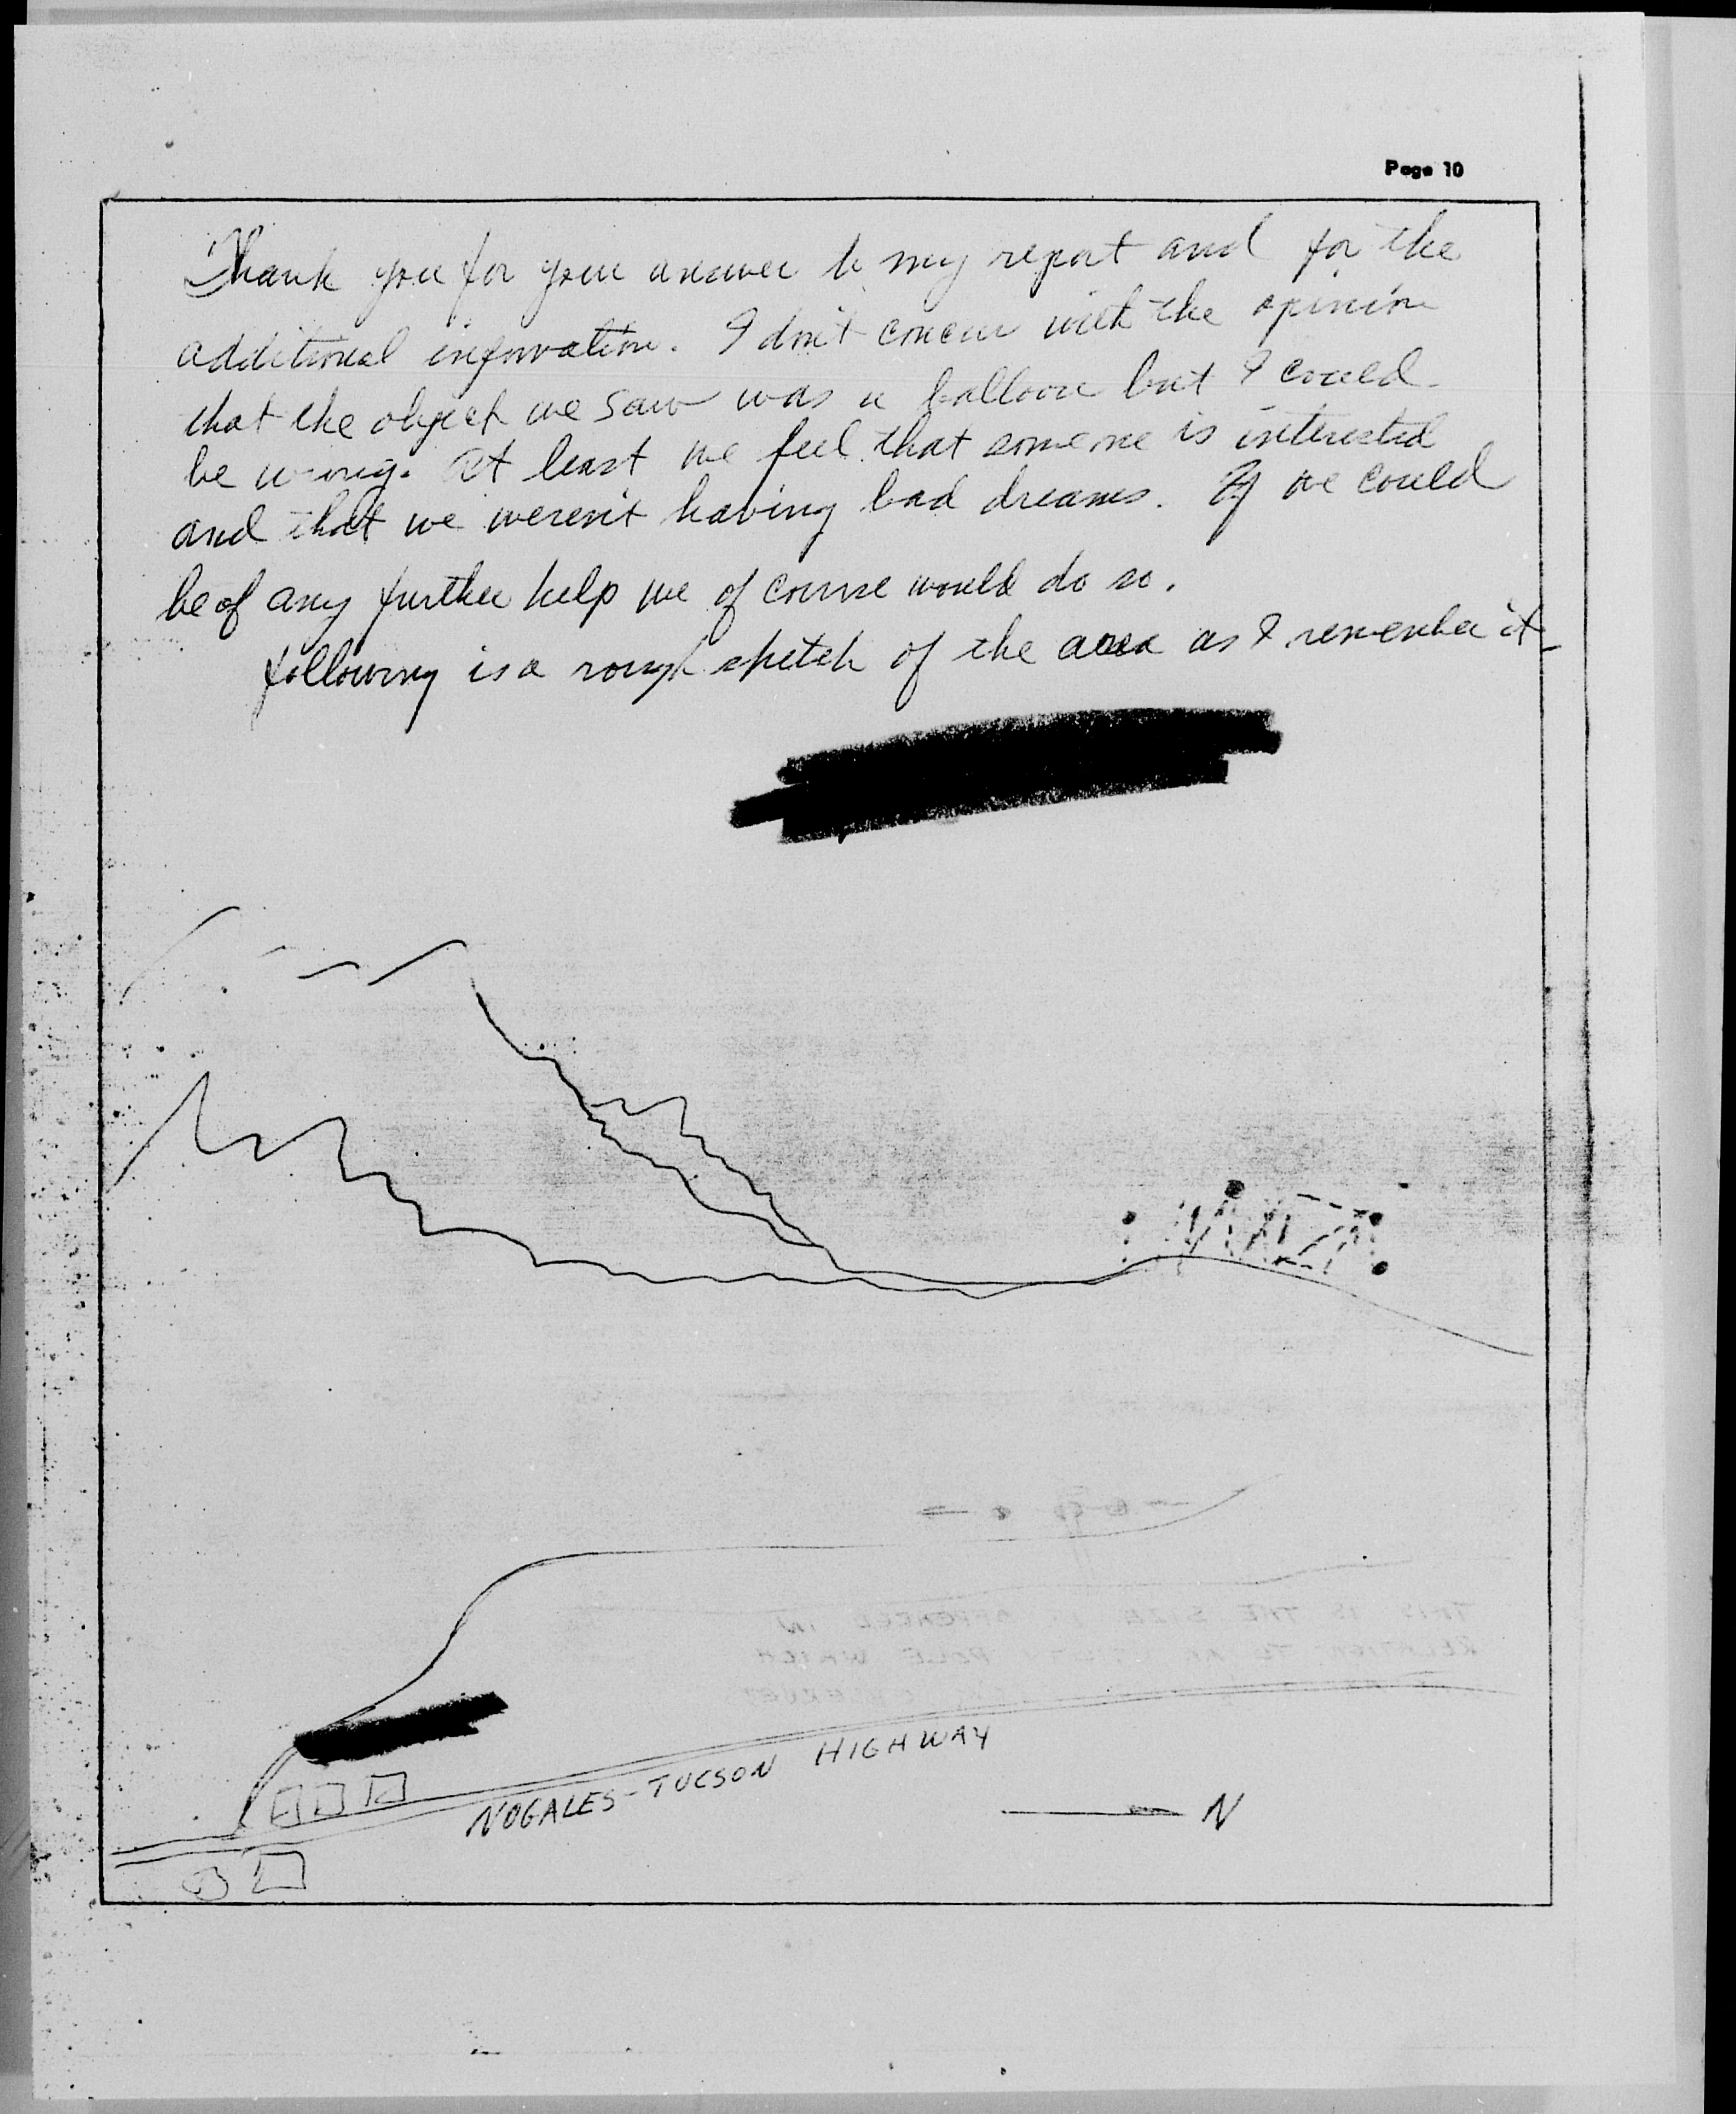 Page 10
Thank you for your answer to my report and for the
additional information. I don't concur with the opinion
that the object we saw was a balloon but I could
be wrong. At least we feel that someone is interested
and that we weren't having bad dreams. If we could
be of any further help we of course would do so.
following is a rough sketch of the area as I remember it
THIS IS THE SIZE IT APPEARED IN
RELATION TO POLE WHICH
NOGALES-TUCSON HIGHWAY
N